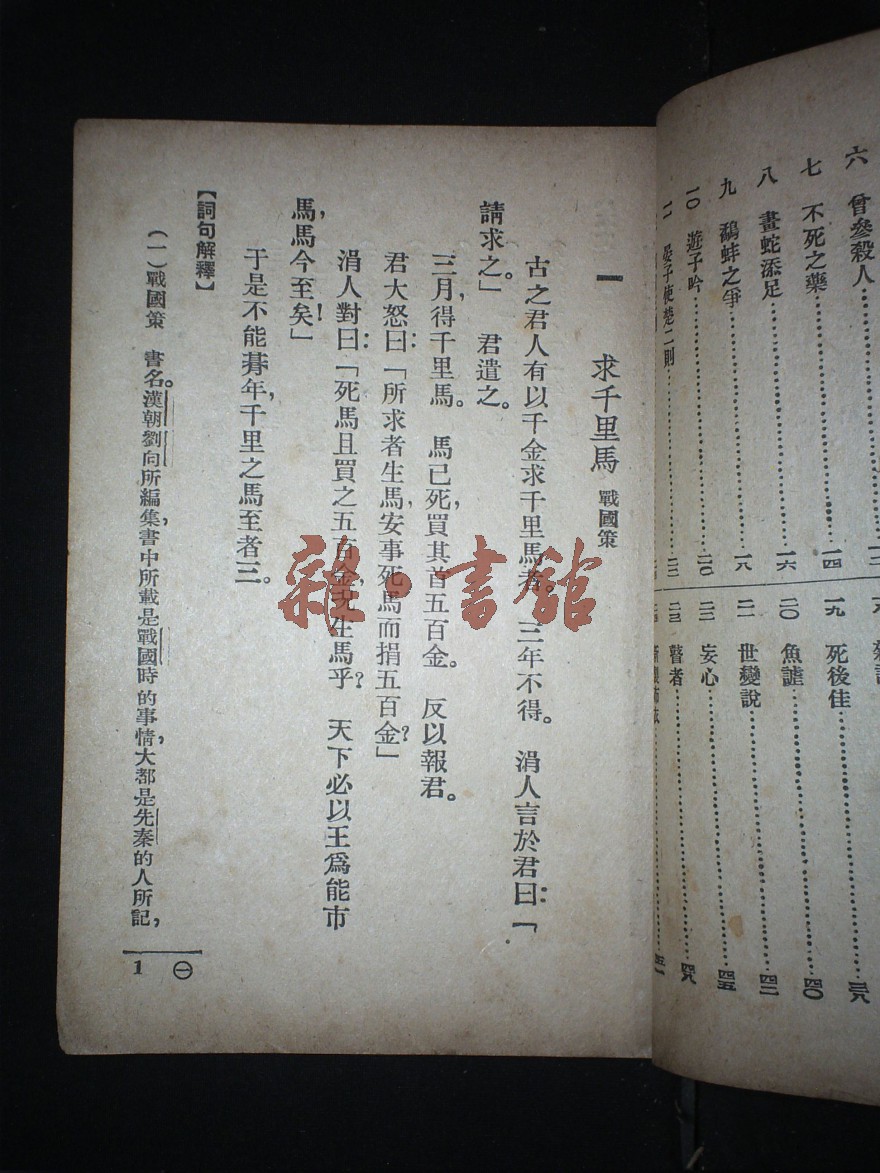 六　曾參殺人
七　不死之藥……一四
八　畫蛇添足……一六
九　鷸蚌之爭……一八
一〇　遊子吟……二〇
一一　晏子使楚二則……二二
一九　死後佳……四〇
二〇　魚謔……四二
二一　世變說……四五
二二　妄心……四八
二三　瞽者
一　求千里馬　戰國策
古之君人有以千金求千里馬者。三年不得。涓人言於君曰：「
請求之。」君遣之。
三月，得千里馬。馬已死，買其首五百金。反以報君。
君大怒曰：「所求者生馬，安事死馬而捐五百金？」
涓人對曰：「死馬且買之五百金，況生馬乎？天下必以王爲能市
馬，馬今至矣！」
于是不能朞年，千里之馬至者三。
【詞句解釋】
（一）戰國策　書名。漢朝劉向所編集，書中所載是戰國時的事情，大都是先秦的人所記，
㊀
1
雜·書館